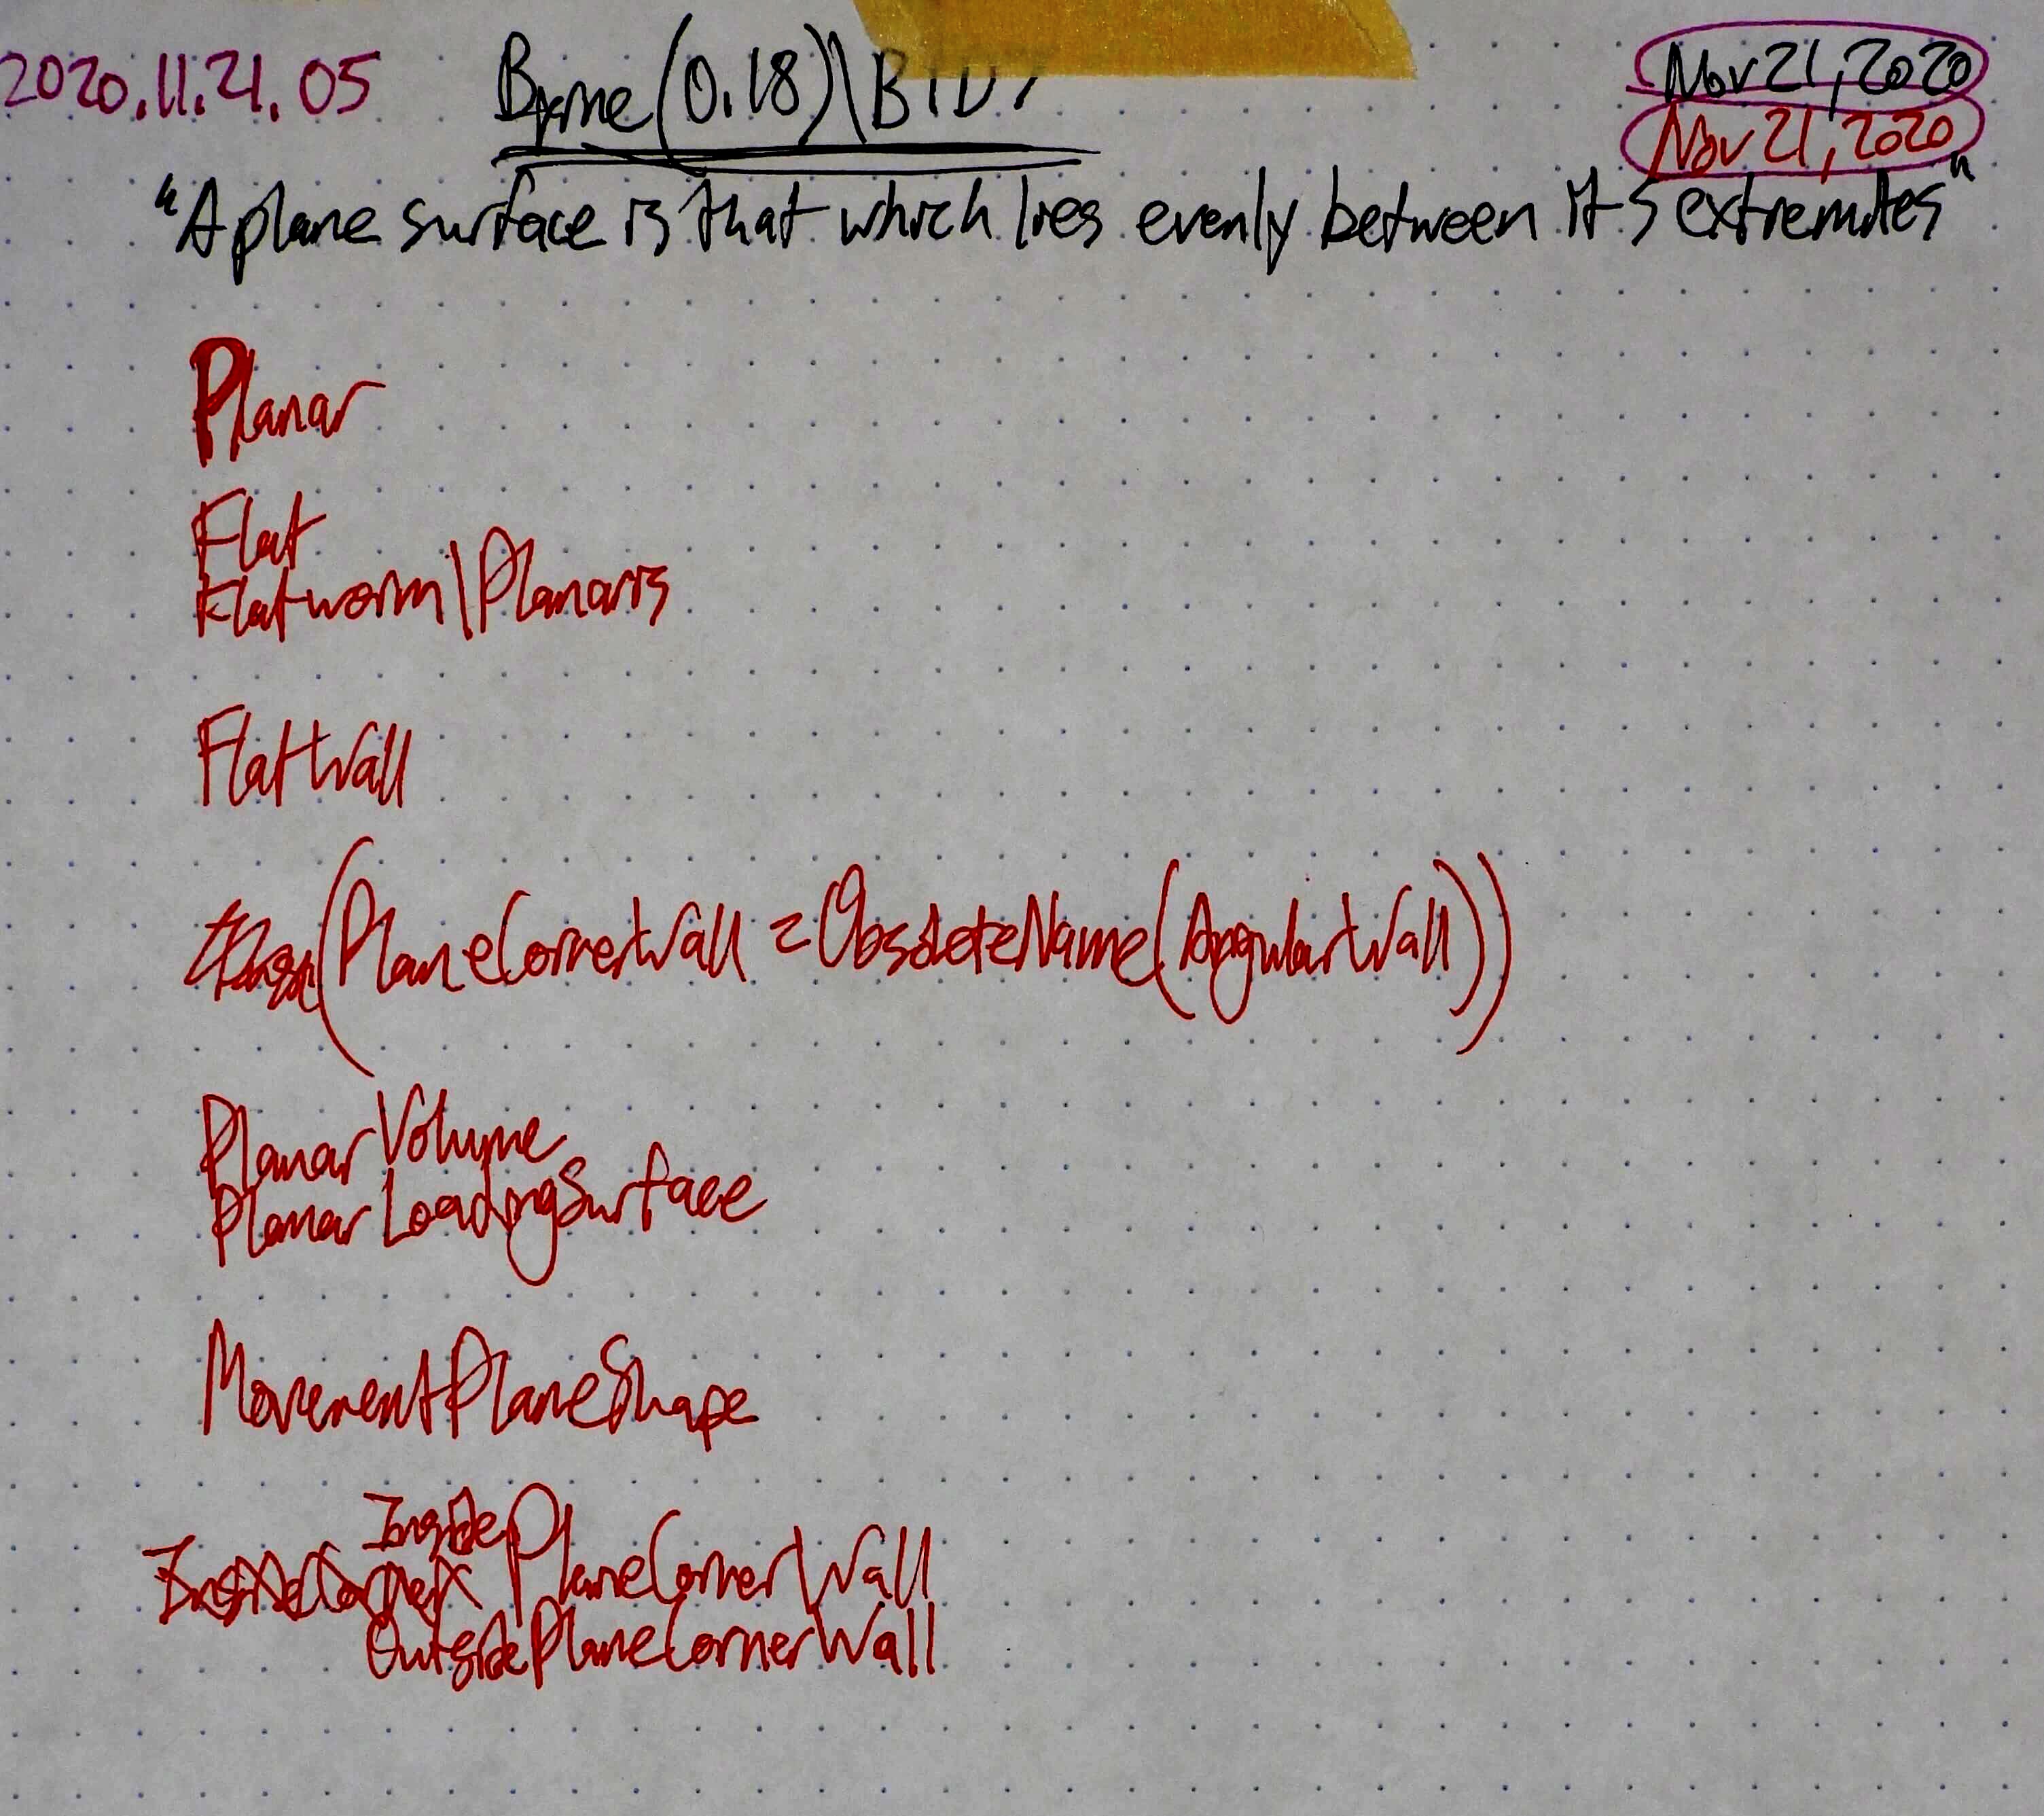 2020.11.21.05 Byrne(0.18)\BID7 Nov 21, 2020
Nov 21, 2020
"A plane surface is that which lies evenly between it's extremites"
Planar
Flat
Flatworm\Planaris
FlatWall
(PlaneCornerWall = ObsoleteName(AngularWall))
PlanarVolume
PlanarLoadingSurface
MovementPlaneShape
InsidePlaneCornerWall
OutsidePlaneCornerWall